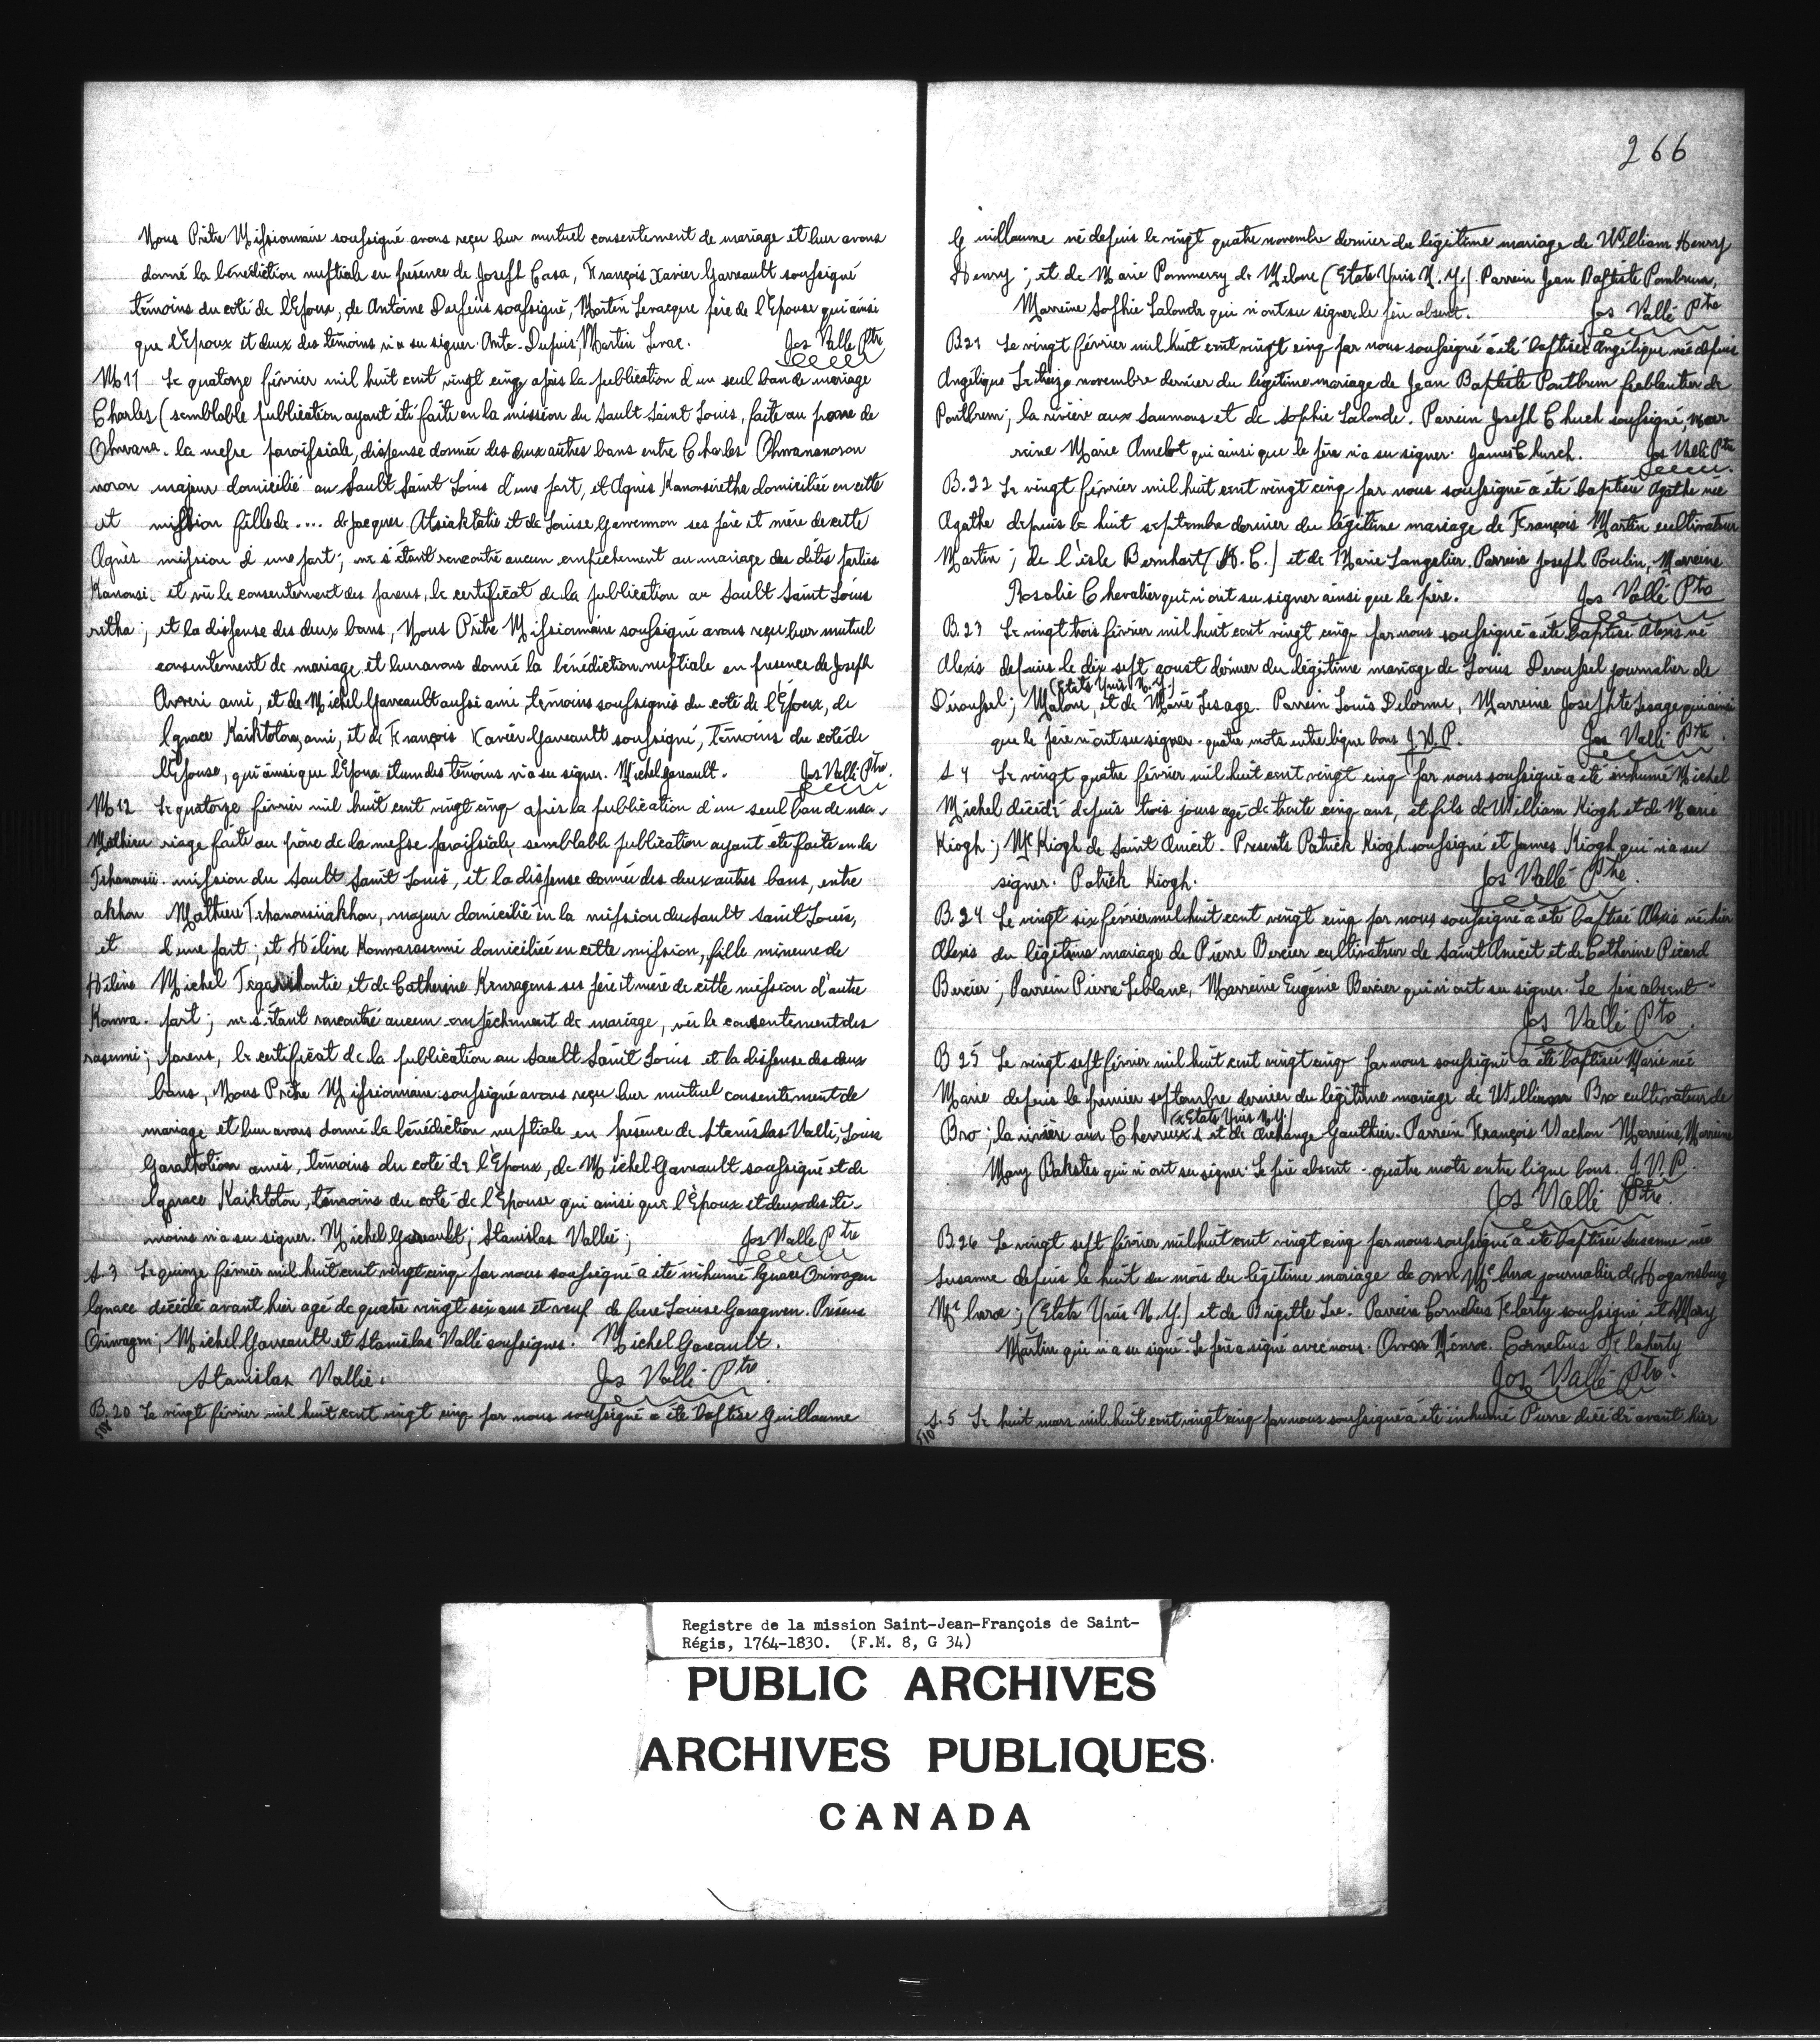 Nous Prêtre Missionnaire soussigné avons reçu leur mutuel consentement de mariage et leur avons
donné la bénédiction nuptiale en présence de Joseph Casa, François Xavier Garreault soussigné
témoins du coté de l'Epoux, de Antoine Dupuis soussigné, Martin Levacque père de l'Epouse qui ainsi
que l'Epoux et deux des témoins n'a su signer. Ante. Dupuis; Martin Levac. Jos Vallé Ptre
M 11 Le quatorze février mil huit cent vingt cinq après la publication d'un seul ban de mariage
Charles (semblable publication ayant été faite en la mission du Sault Saint Louis, faite au prone de
Ohwana. la messe paroissiale, dispense donnée des deux autres bans entre Charles Ohwananoron
noron majeur domicilié au Sault Saint Louis d'une part, et Agnès Kanonsiretha domiciliée en cette
et mission fille de .... de Jacques Atsiaktatie et de Louise Gawennon ses père et mère de cette
Agnès mission d'une part; ne s'étant rencontré aucun empêchement au mariage des dites parties
Kanonsi- et vû le consentement des parens, le certificat de la publication au Sault Saint Louis
retha; et la dispense des deux bans, Nous Prêtre Missionnaire soussigné avons reçu leur mutuel
consentement de mariage et leur avons donné la bénédiction nuptiale en presence de Joseph
Avveri ami, et de Michel Garreault aussi ami, témoins soussignés du coté de l'Epoux, de
Ignace Kaiktoton, ami, et de François Xavier Garreault soussigné, témoins du coté de
l'Epouse, qui ainsi que l'Epoux et un des témoins n'a su signer. Michel Gareault. Jos Vallé Ptre.
M 12 Le quatorze février mil huit cent vingt cinq après la publication d'un seul ban de ma-
Mathieu riage faite au prône de la messe paroissiale, semblable publication ayant été faite en la
Tehanonsii. mission du Sault Saint Louis, et la dispense donnée des deux autres bans, entre
akhon Mathieu Tehanonsiiakhon, majeur domicilié en la mission du Sault Saint Louis,
et d'une part; et Hélène Konwarasenni domiciliée en cette mission, fille mineure de
Hélène Michel et de Catherine ses père et mère de cette mission d'autre
Konwa. part; ne s'étant rencontré aucun empêchement de mariage, vû le consentement des
rasenni; parens, le certificat de la publication au Sault Saint Louis et la dispense des deux
bans, Nous Prêtre Missionnaire soussigné avons reçu leur mutuel consentement de
mariage et leur avons donné la bénédiction nuptiale en présence de Stanislas Vallé, Louis
Garathotion amis, témoins du coté de l'Epoux, de Michel Garreault soussigné et de
Ignace Kaiktoton, témoins du coté de l'Epouse qui ainsi que l'Epoux et deux des té-
moins n'a su signer. Michel Gareault; Stanislas Vallée; Jos Vallé Ptre
S. 3 Le quinze février mil huit cent vingt cinq par nous soussigné a été inhumé Ignace Oriwagen
Ignace décédé avant hier agé de quatre vingt six ans et veuf de feue Louise Garagwen. Présens
Oriwagen; Michel Garreault et Stanislas Vallé soussignés. Michel Gareault.
Stanislas Vallée. Jos Vallé Ptre
B. 20 Le vingt février mil huit cent vingt cinq par nous soussigné a été baptisé Guillaume
266
Guillaume né depuis le vingt quatre novembre dernier du légitime mariage de William Henry
Henry; et de Marie Pommeroy de Malone (Etats Unis N. Y.) Parrein Jean Baptiste Pombrun,
Marreine Sophie Lalonde qui n'ont su signer. Le père absent. Jos Vallé Ptre
B 21 Le vingt février mil huit cent vingt cinq par nous soussigné a été baptisée Angélique née depuis
Angélique Le treize novembre dernier du légitime mariage de Jean Baptiste Pontbrun ferblantier de
Pontbrun; la rivière aux Saumons et de Sophie Lalonde. Parrein Joseph Church soussigné, mar
reine Marie Amelot qui ainsi que le père n'a su signer. James Church. Jos Vallé Ptre
B. 22 Le vingt février mil huit cent vingt cinq par nous soussigné a été baptisée Agathe née
Agathe depuis le huit septembre dernier du légitime mariage de François Martin cultivateur
Martin; de l'isle Bernhart (H. C.) et de Marie Langelier. Parrein Joseph Poulin, Marreine
Rosalie Chevalier qui n'ont su signer ainsi que le père. Jos Vallé Ptre
B. 23 Le vingt trois février mil huit cent vingt cinq par nous soussigné a été baptisé Alexis né
Alexis depuis le dix sept aoust dernier du légitime mariage de Louis Deroussel journalier de
(Etats Unis N. Y.)
Déroussel; Malone, et de Marie Lesage. Parrein Louis Delorme, Marreine Josephte Lesage qui ainsi
que le père n'ont su signer - quatre mots entre ligne bons J. V. P. Jos Vallé Ptre.
S. 4 Le vingt quatre février mil huit cent vingt cinq par nous soussigné a été inhumé Michel
Michel décédé depuis trois jours agé de trente cinq ans, et fils de William Kiogh et de Marie
Kiogh; Mc Kiogh de Saint Anicet. Presents Patrick Kiogh soussigné et James Kiogh qui n'a su
signer. Patrick Kiogh. Jos Vallé Ptre.
B. 24 Le vingt six février mil huit cent vingt cinq par nous soussigné a été baptisé Alexis né hier
Alexis du légitime mariage de Pierre Bercier cultivateur de Saint Anicet et de Catherine Picard
Bercier; Parrein Pierre Leblanc, Marreine Eugénie Bercier qui n'ont su signer. Le père absent -
Jos Vallé Ptre.
B 25 Le vingt sept février mil huit cent vingt cinq par nous soussigné a été baptisée Marie née
Marie depuis le premier septembre dernier du légitime mariage de William Bro cultivateur de
(Etats Unis N.Y.)
Bro; la rivière aux Chevreuxs et de Archange Gauthier. Parrein François Vachon Marreine, Marreine
Mary Bakstes qui n'ont su signer. Le père absent - quatre mots entre ligne bons. J. V. P.
Jos Vallé Ptre.
B. 26 Le vingt sept février mil huit cent vingt cinq par nous soussigné a été baptisée Susanne née
Susanne depuis le huit du mois du légitime mariage de journalier de Hogansburg
(Etats Unis N. Y.) et de Brigette Lee. Parrein Cornelius soussigné, et Mary
Martin qui n'a su signé. Le père a signé avec nous. Monroe. Cornelius
Jos Vallé Ptre.
S. 5 Le huit mars mil huit cent vingt cinq par nous soussigné a été inhumé Pierre décédé avant hier
510
Registre de la mission Saint-Jean-François de Saint-
Régis, 1764-1830. (F.M. 8, G 34)
PUBLIC ARCHIVES
ARCHIVES PUBLIQUES
CANADA